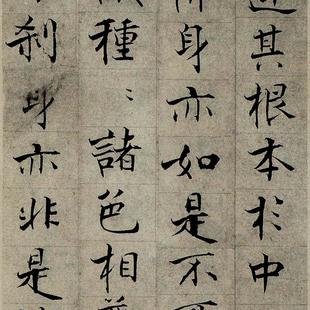 其根本於中
身亦如是不
種〻諸色相
刹身亦非是